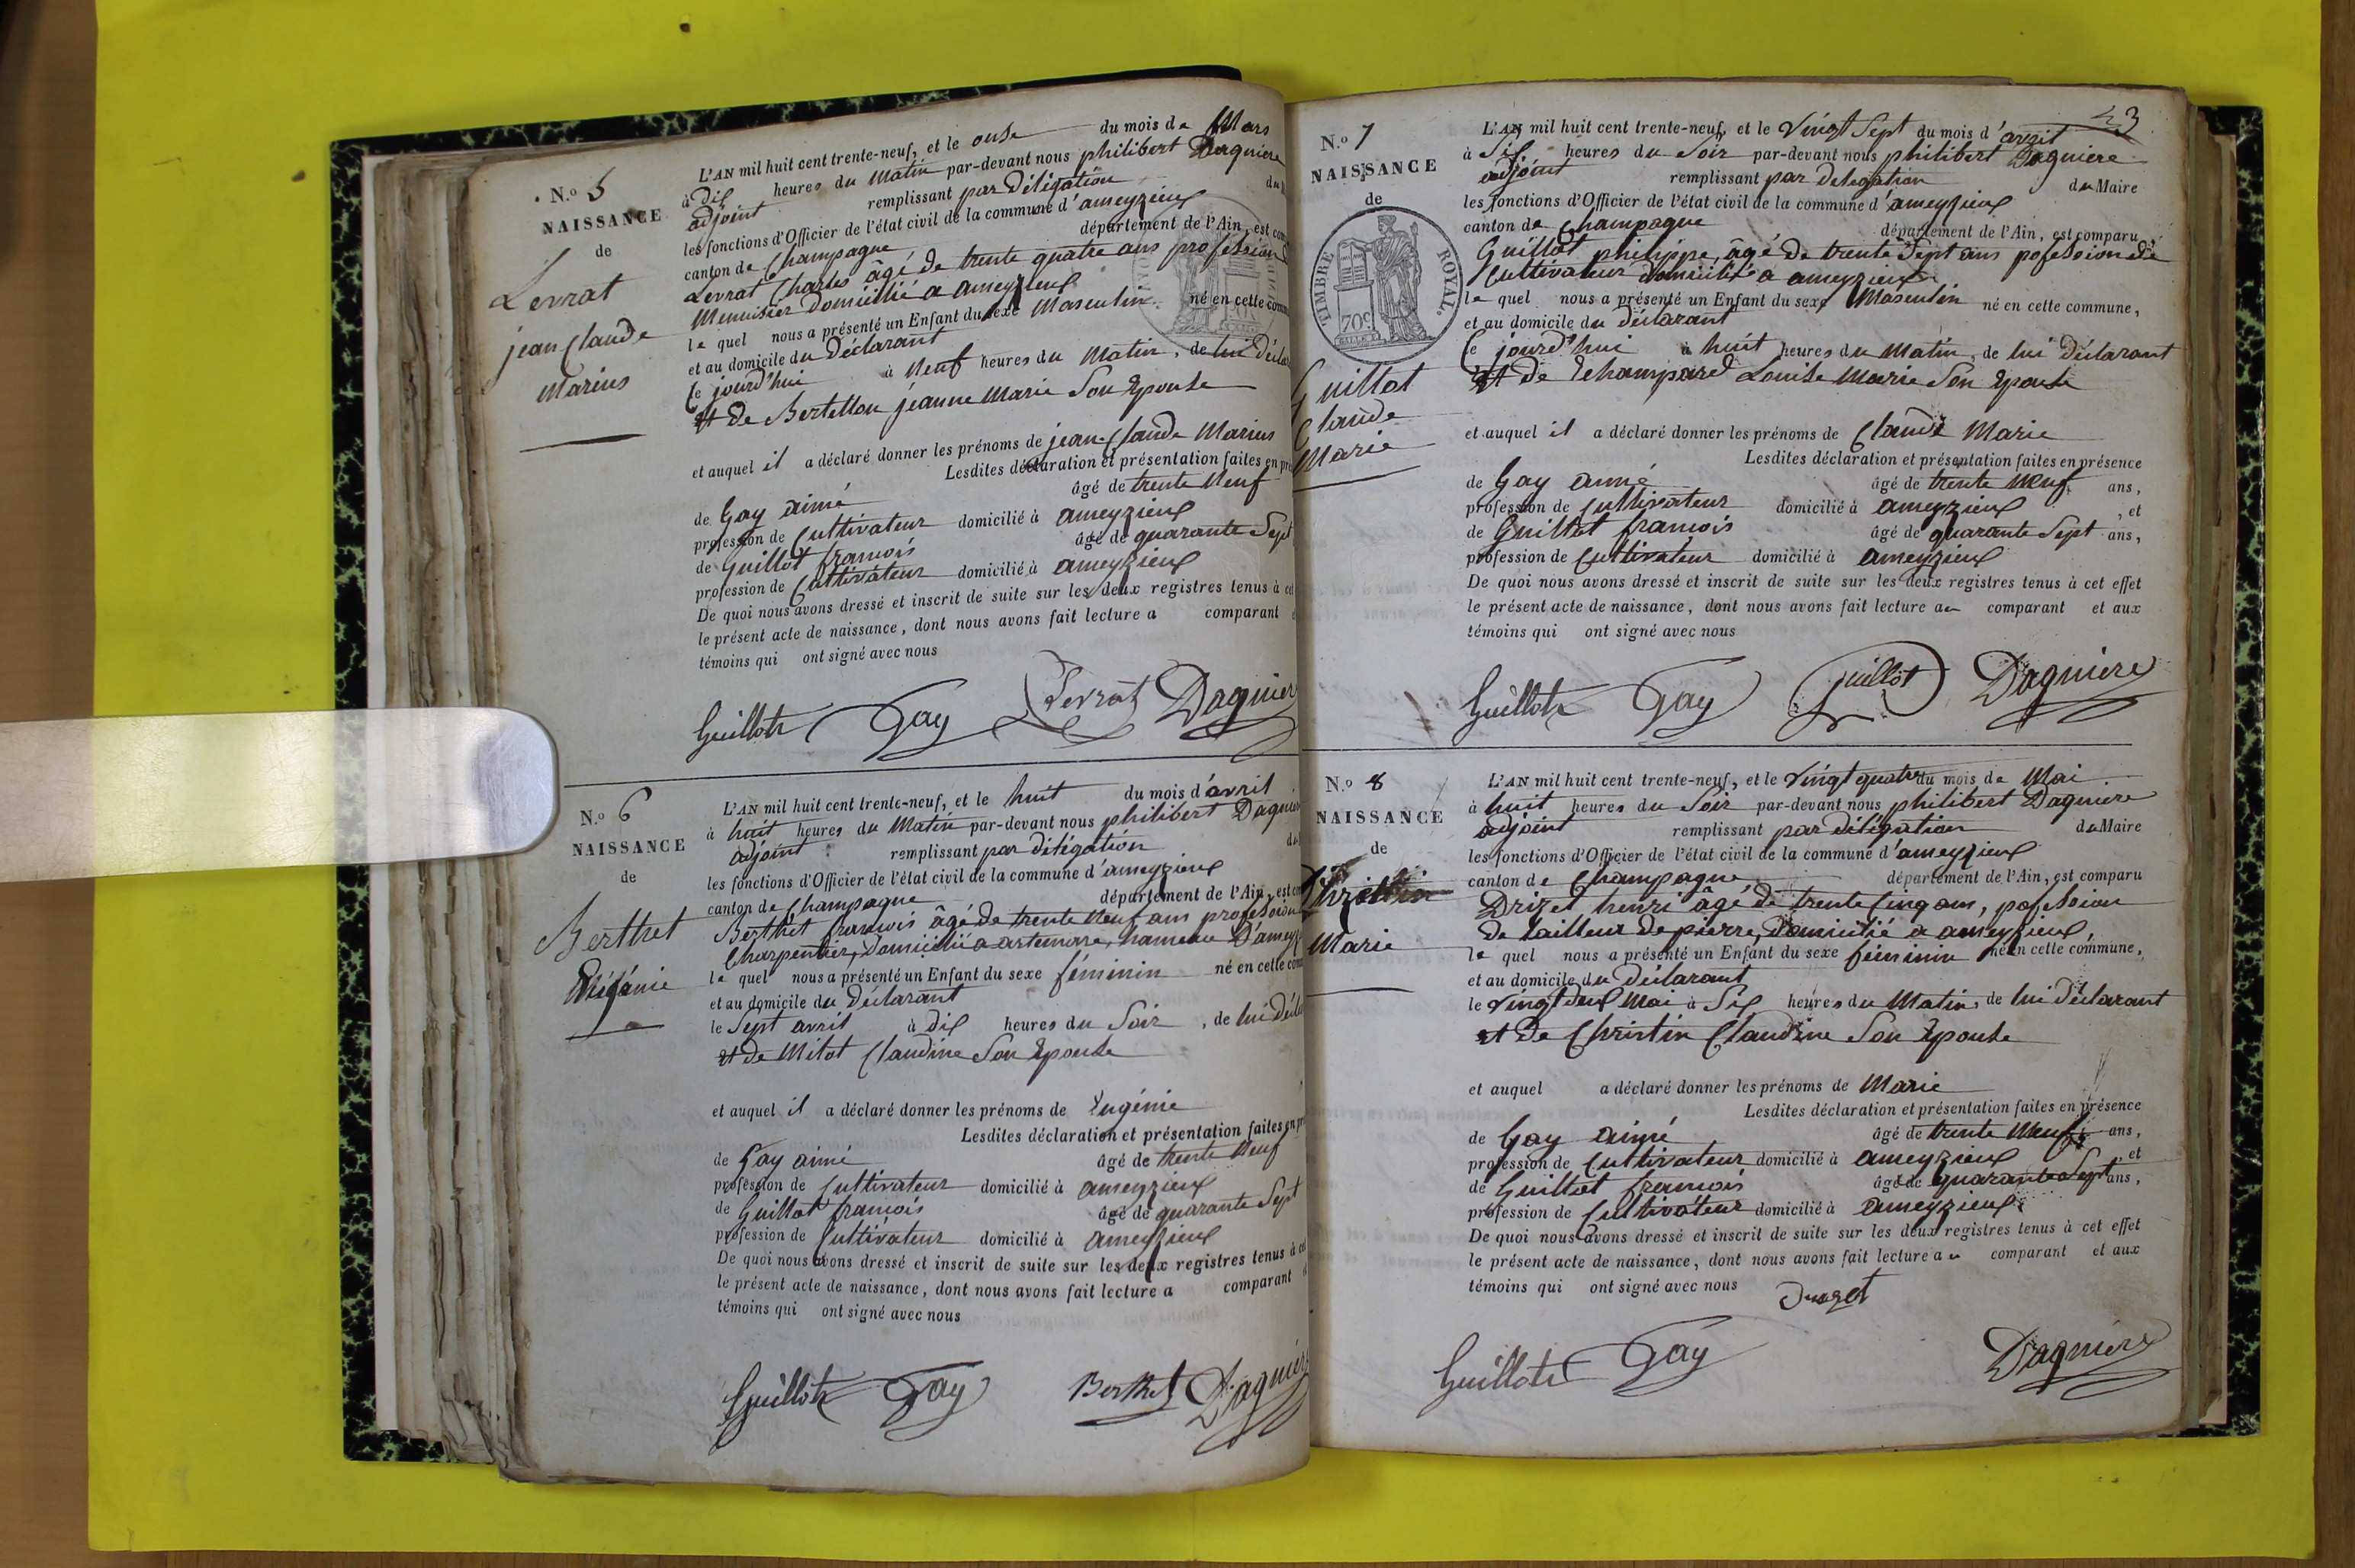 N.º 5
NAISSANCE
de
Levrat
jean Claude
Marius
L'AN mil huit cent trente-neuf, et le onse du mois de Mars
à dix heures du Matin par-devant nous philibert Dagniere
adjoint remplissant par Déligation du
les fonctions d'Officier de l'état civil de la commune d'ameyzieux
canton de Champagne département de l'Ain, est com
Levrat Charles âgé de trente quatre ans profession
Menuisier Domicilié a ameyzieux
le quel nous a présenté un Enfant du sexe Masculin né en cette comm
et au domicile du Déclarant
Ce jourd'hui à Neuf heures du Matin, de lui Décla
Et de Bertellon jeanne Marie Son Epouse
et auquel il a déclaré donner les prénoms de jean Claude Marius
Lesdites déclaration et présentation faites en pré
de Gay aimé âgé de trente Neuf
profession de Cultivateur domicilié à ameyzieux
de Guillot francois âgé de quarante Sept
profession de Cultivateur domicilié à ameyzieux
De quoi nous avons dressé et inscrit de suite sur les deux registres tenus à cet
le présent acte de naissance, dont nous avons fait lecture a comparant e
témoins qui ont signé avec nous
Guillot Gay Levrat Dagnier
N.º 6
NAISSANCE
de
Berthet
Eugénie
L'AN mil huit cent trente-neuf, et le huit du mois d'avril
à huit heures du Matin par-devant nous philibert Dagnier
adjoint remplissant par Déligation du
les fonctions d'Officier de l'état civil de la commune d'ameyzieux
canton de Champagne département de l'Ain, est com
Berthet francois âgé de trente Neuf ans profession
Charpentier, Domicilié a artemare, hameau D'ameyz
le quel nous a présenté un Enfant du sexe féminin né en cette com
et au domicile du Déclarant
le Sept avril à dix heures du Soir, de lui Décla
et de Mitot Claudine Son Epouse
et auquel il a déclaré donner les prénoms de Eugénie
Lesdites déclaration et présentation faites en pr
de Gay aimé âgé de trente Neuf
profession de Cultivateur domicilié à ameyzieux
de Guillot francois âgé de quarante Sept
profession de Cultivateur domicilié à ameyzieux
De quoi nous avons dressé et inscrit de suite sur les deux registres tenus à cet
le présent acte de naissance, dont nous avons fait lecture a comparant
témoins qui ont signé avec nous
Guillot Gay Berthet Dagnier
23
N.º 7
NAISSANCE
de
TIMBRE ROYAL.
70c
Guillot
Claude
Marie
L'AN mil huit cent trente-neuf, et le Vingt Sept du mois d'avril
à Six heures du Soir par-devant nous philibert Dagniere
adjoint remplissant par Delegation du Maire
les fonctions d'Officier de l'état civil de la commune d'ameyzieux
canton de Champagne département de l'Ain, est comparu
Guillot philippe, âgé de trente Sept ans pofession de
Cultivateur Domicilié a ameyzieux
le quel nous a présenté un Enfant du sexe Masculin né en cette commune,
et au domicile du déclarant
Ce jourd'hui à huit heures du Matin, de lui Déclarant
Et de Dechampard Louise Marie Son Epouse
et auquel il a déclaré donner les prénoms de Claude Marie
Lesdites déclaration et présentation faites en présence
de Gay aimé âgé de trente Neuf ans,
profession de Cultivateur domicilié à ameyzieux, et
de Guillot francois âgé de quarante Sept ans,
profession de Cultivateur domicilié à ameyzieux
De quoi nous avons dressé et inscrit de suite sur les deux registres tenus à cet effet
le présent acte de naissance, dont nous avons fait lecture au comparant et aux
témoins qui ont signé avec nous
Guillot Gay Guillot Dagniere
N.º 8
NAISSANCE
de
Marie
L'AN mil huit cent trente-neuf, et le Vingt quatre du mois de Mai
à huit heures du Soir par-devant nous philibert Dagniere
adjoint remplissant par Déligation du Maire
les fonctions d'Officier de l'état civil de la commune d'ameyzieux
canton de Champagne département de l'Ain, est comparu
Drizet henri âgé de trente Cinq ans, pofession
de tailleur de pierre, Domicilié a ameyzieux,
le quel nous a présenté un Enfant du sexe féminin né en cette commune,
et au domicile du Déclarant
le Vingt deux Mai à Six heures du Matin, de lui Déclarant
et de Christin Claudine Son Epouse
et auquel a déclaré donner les prénoms de Marie
Lesdites déclaration et présentation faites en présence
de Gay aimé âgé de trente Neuf ans,
profession de Cultivateur domicilié à ameyzieux, et
de Guillot francois âgé de quarante Sept ans,
profession de Cultivateur domicilié à ameyzieux
De quoi nous avons dressé et inscrit de suite sur les deux registres tenus à cet effet
le présent acte de naissance, dont nous avons fait lecture au comparant et aux
témoins qui ont signé avec nous
Guillot Gay Dagniere